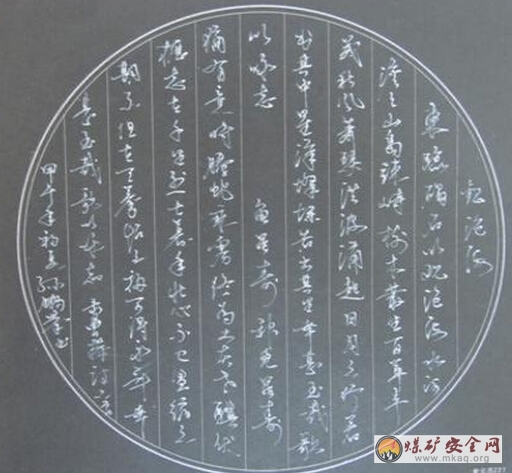 观沧海
东临碣石以观沧海水何
澹澹山岛竦峙树木丛生百草丰
茂秋风萧瑟洪波涌起日月之行若
出其中星汉灿烂若出其里幸甚至哉歌
以咏志 龟虽寿 神龟虽寿
犹有竟时腾蛇乘雾终为土灰老骥伏
枥志在千里烈士暮年壮心不已盈缩之
期不但在天养怡之福可得永年幸
甚至哉歌以咏志 曹操诗
甲午年初夏 书
煤矿安全网
www.mkaq.org